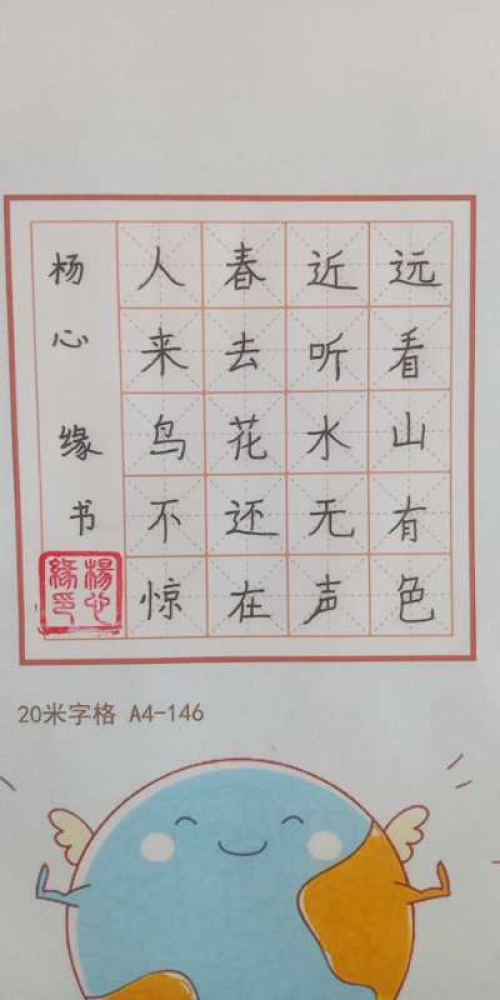 远看山有色
近听水无声
春去花还在
人来鸟不惊
杨心缘书
楊心
緣印
20米字格 A4-146